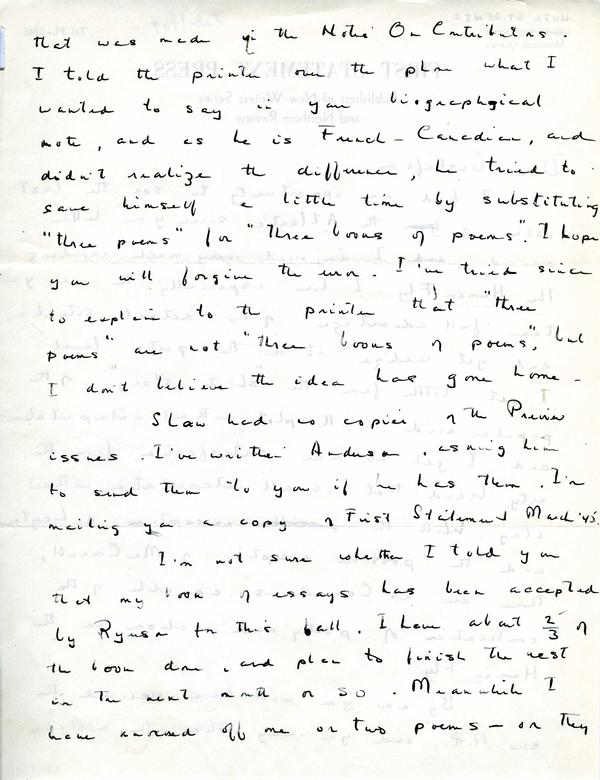 that was made in the Notes On Contributors.
I told the printer over the phone what I
wanted to say in your biographical
note, and as he is French-Canadian, and
didn't realize the difference, he tried to
save himself a little time by substituting
"three poems" for "three books of poems". I hope
you will forgive the error. I've tried since
to explain to the printer that "three
poems" are not "three books of poems", but
I don't believe the idea has gone home.
Shaw had no copies of the Preview
issues. I've written Anderson, asking him
to send them to you if he has them. I'm
mailing you a copy of First Statement March '45.
I'm not sure whether I told you
that my book of essays has been accepted
by Ryerson for this fall. I have about 2/3 of
the book done, and plan to finish the rest
in the next month or so. Meanwhile I
have one or two poems — or they